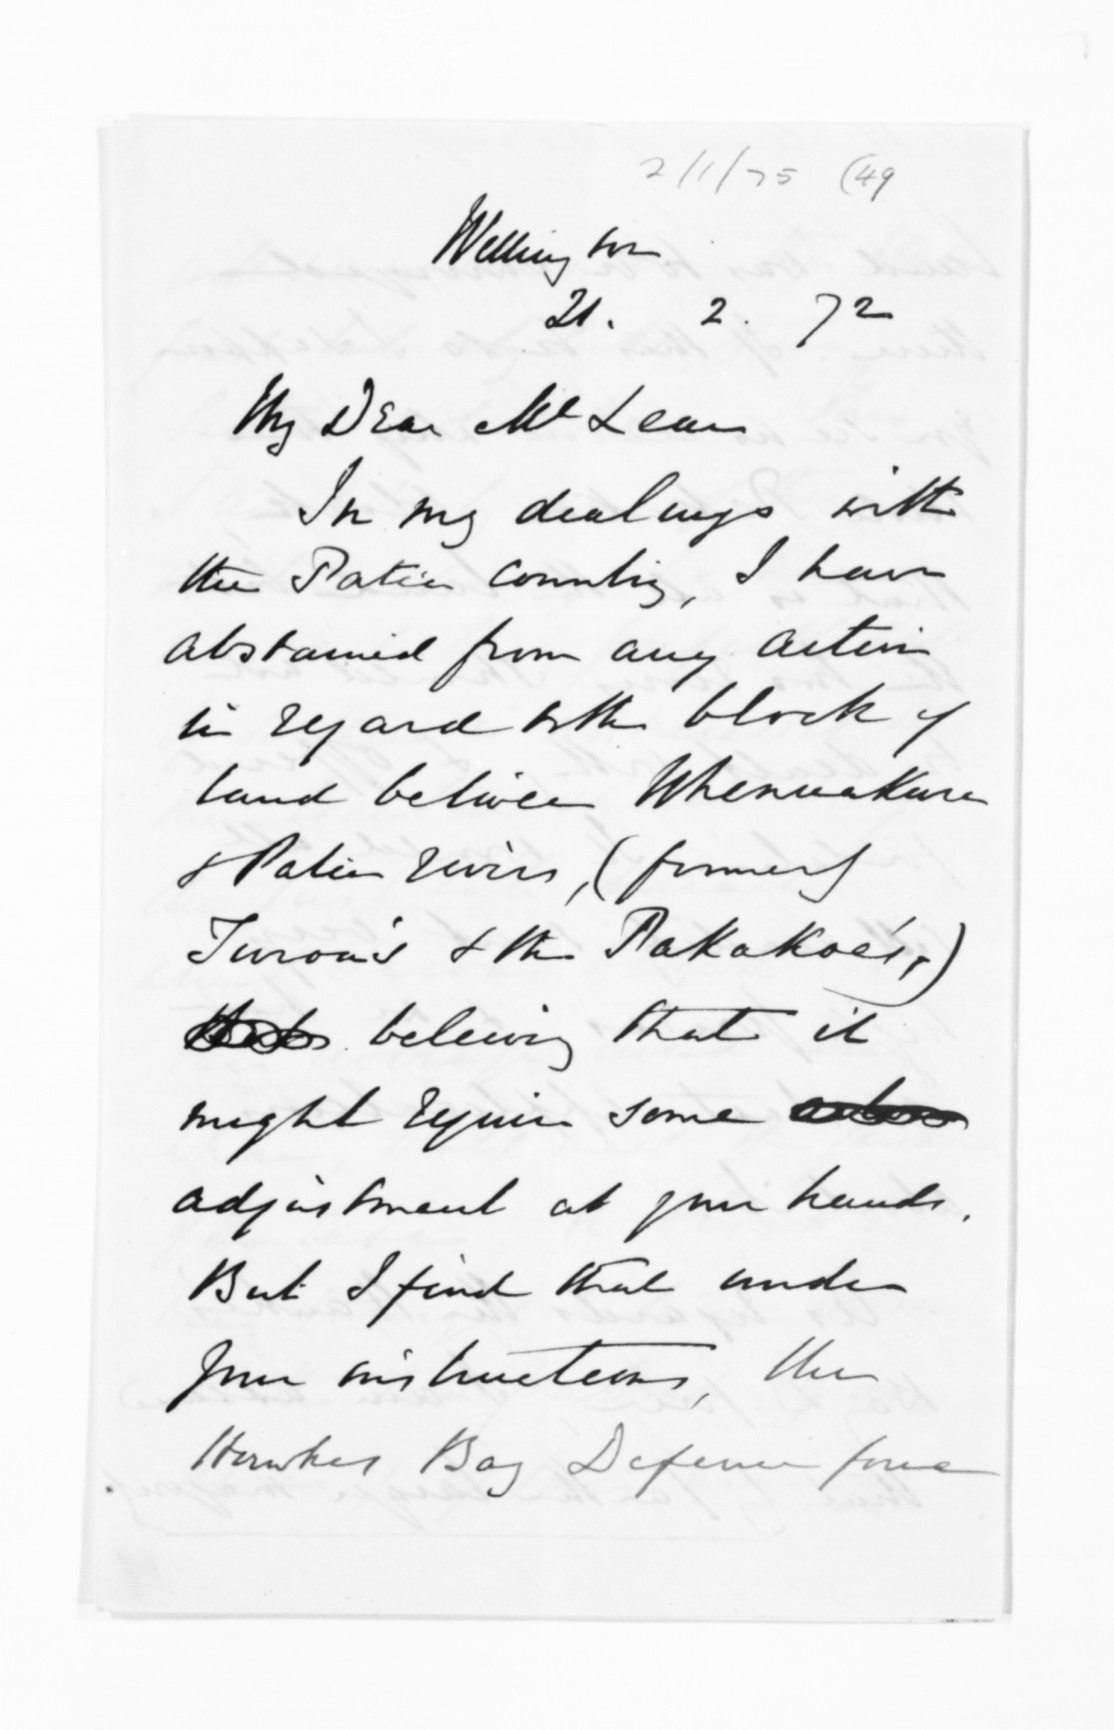 2/1/75 (49
Wellington
21. 2. 72
My Dear McLean
In my dealings with
the Patea Country, I have
abstained from any action
in regard to the block of
land between Whenuakura
& Patea rivers, (formerly
Turoa's & the Pakakohe's,)
beleiving that it
might require some
adjustment at your hands.
But I find that under
your instructions, the
Hawkes Bay Defence force